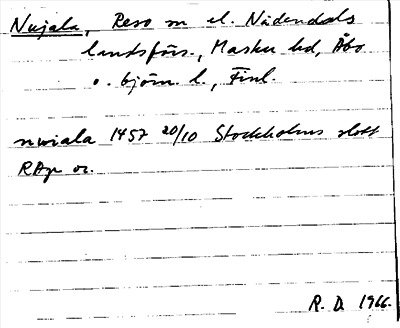 Nujala, Reso sn el. Nådendals
landsförs., Masku hd, Åbo
o. Björn. l., Finl.
nwiala 1457 20/10 Stockholms slott
RAp or.
R. D. 1966.